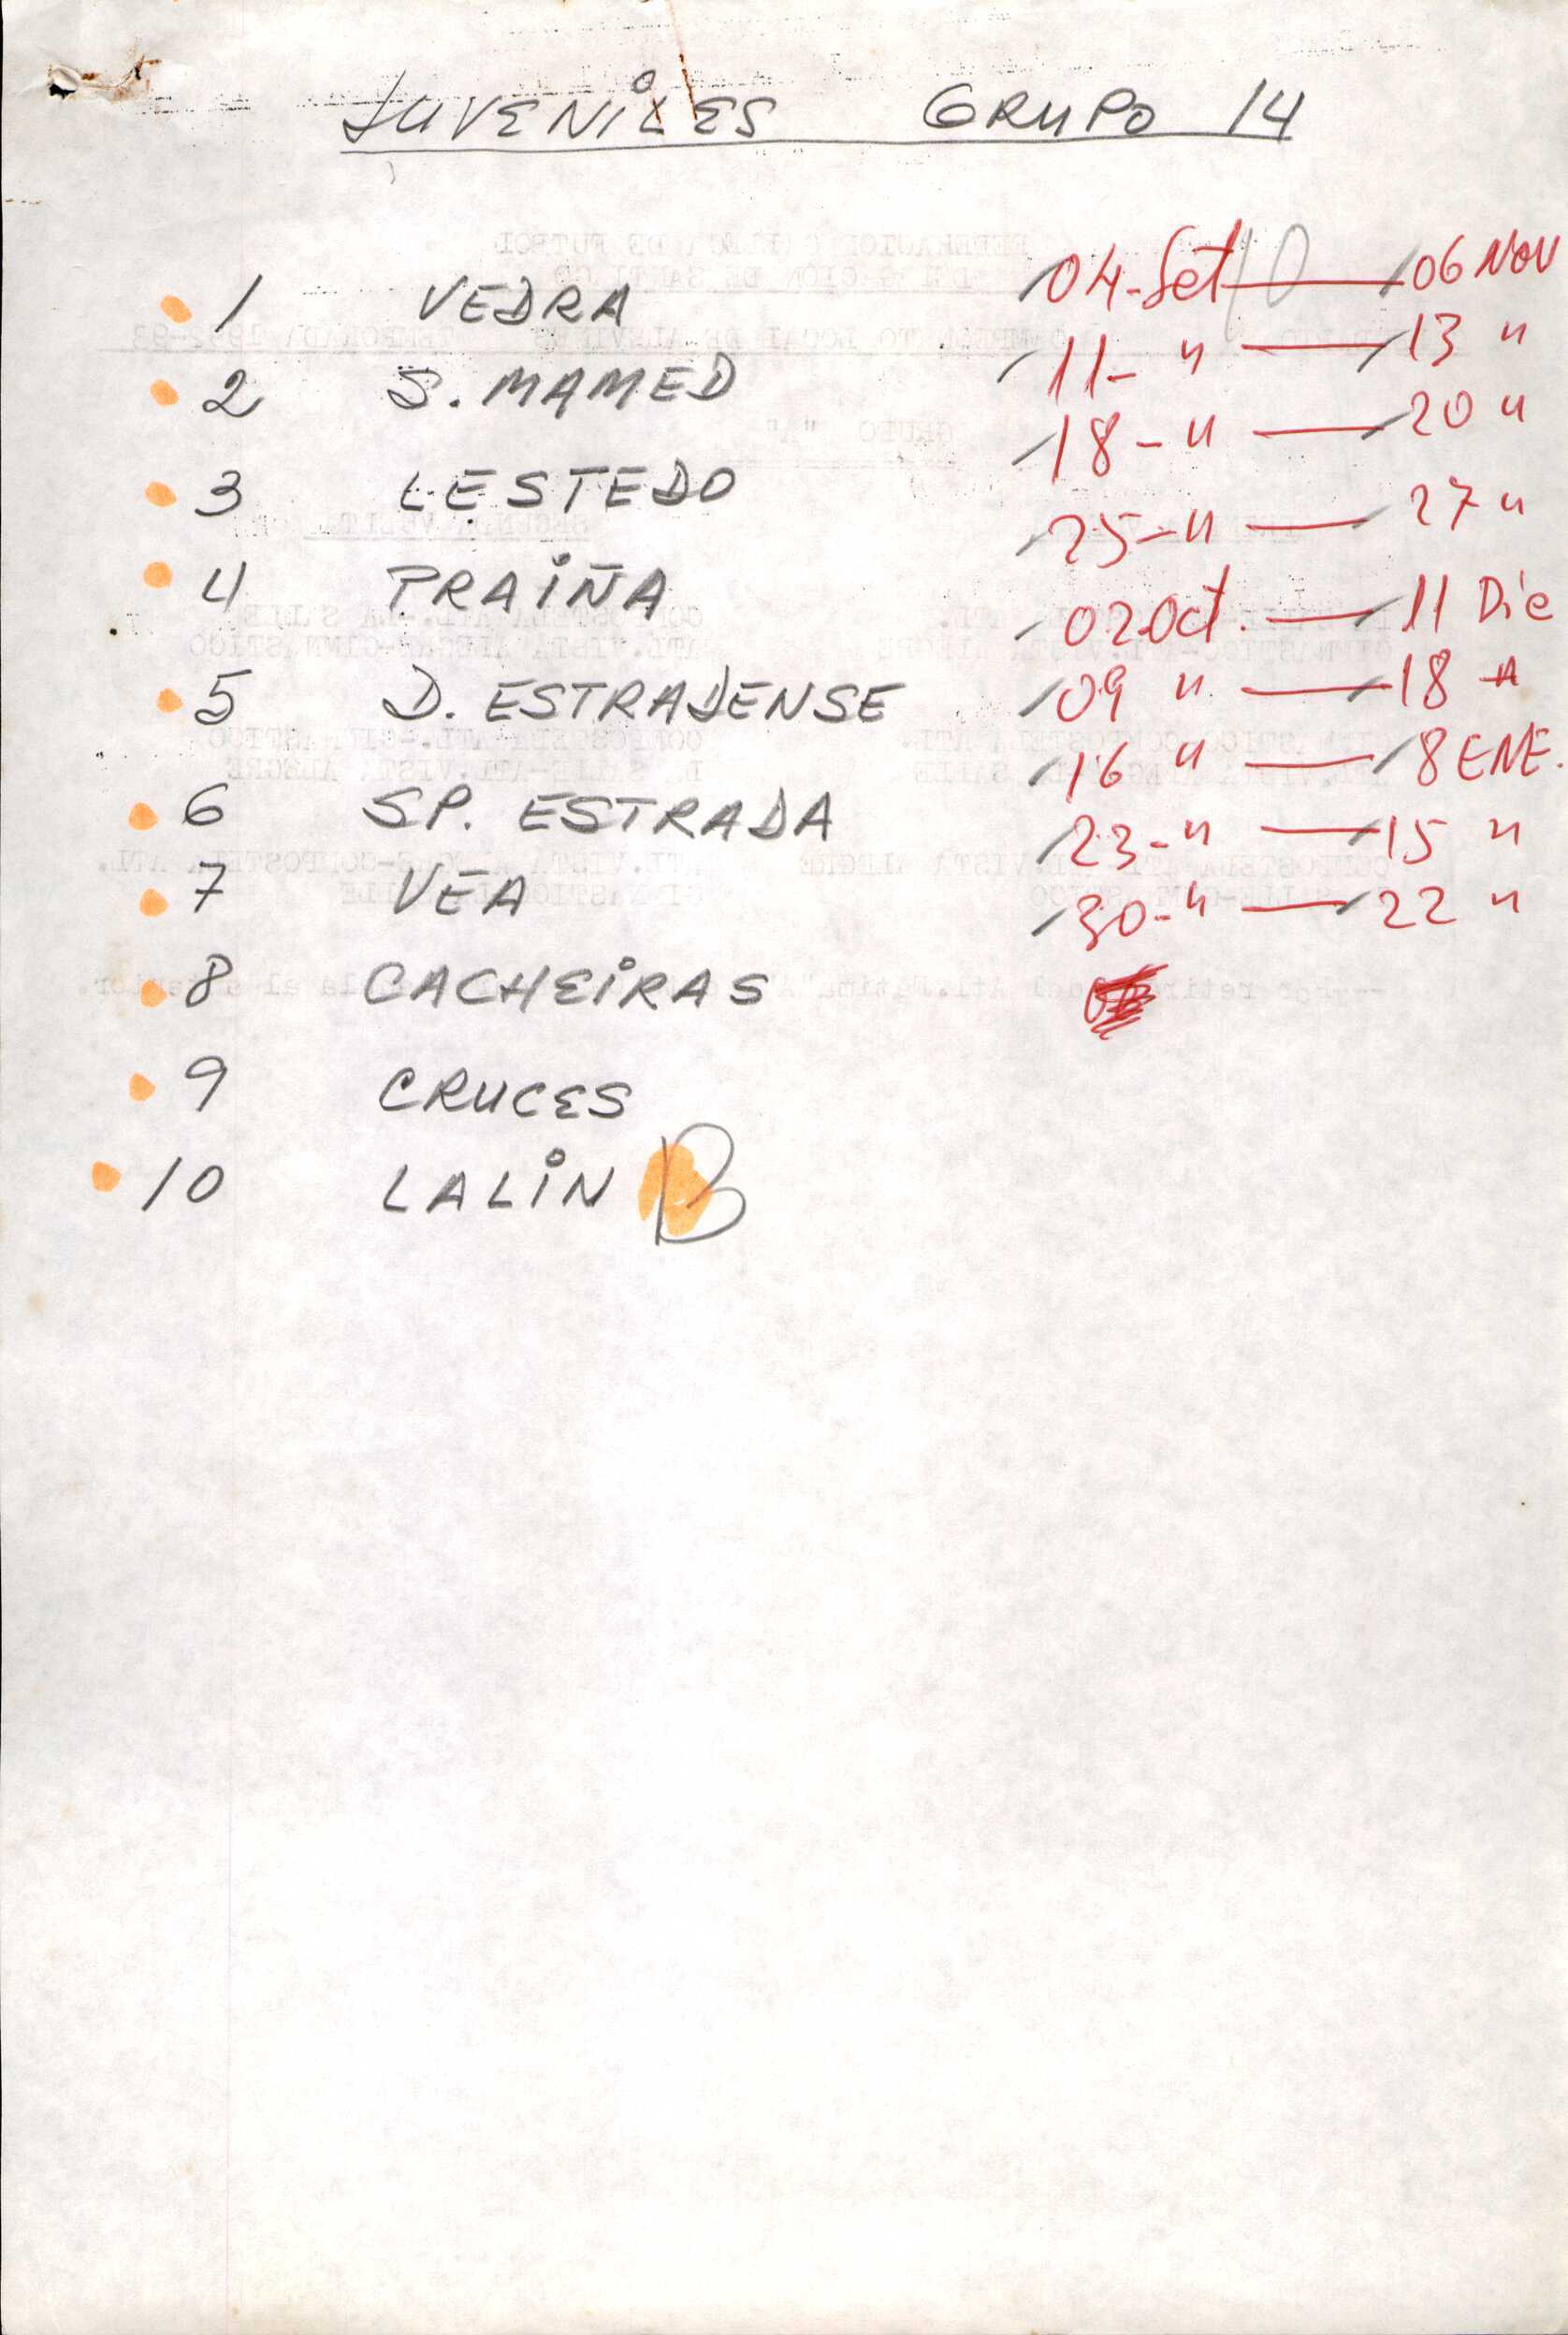 JUVENILES GRUPO 14
1 VEDRA
2 S. MAMED
3 LESTEDO
4 PRAIÑA
5 D. ESTRADENSE
6 SP. ESTRADA
7 VEA
8 CACHEIRAS
9 CRUCES
10 LALIN B
04-Set 10 — 06 NOV
11- " — 13 "
18- " — 20 "
25- " — 27 "
02 Oct. — 11 Dic
09 " — 18 "
16 " — 8 ENE.
23- " — 15 "
30- " — 22 "